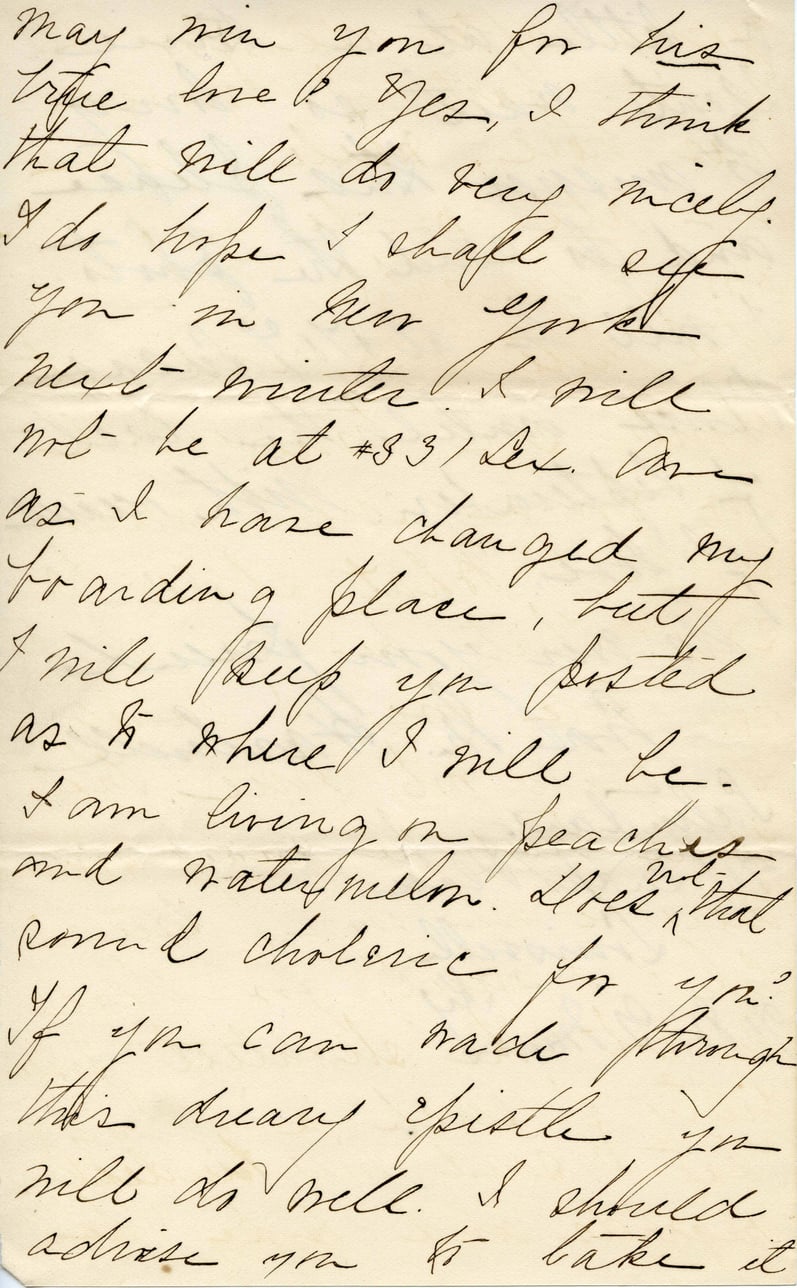 may win you for his
true love? Yes, I think
that will do very nicely.
I do hope I shall see
you in New York
next winter. I will
not be at #331 Lex. Ave
as I have changed my
boarding place, but
I will keep you posted
as to where I will be.
I am living on peaches
and watermelon. Does not that
sound choleric for you?
If you can wade through
this dreary epistle you
will do well. I should
advise you to take it